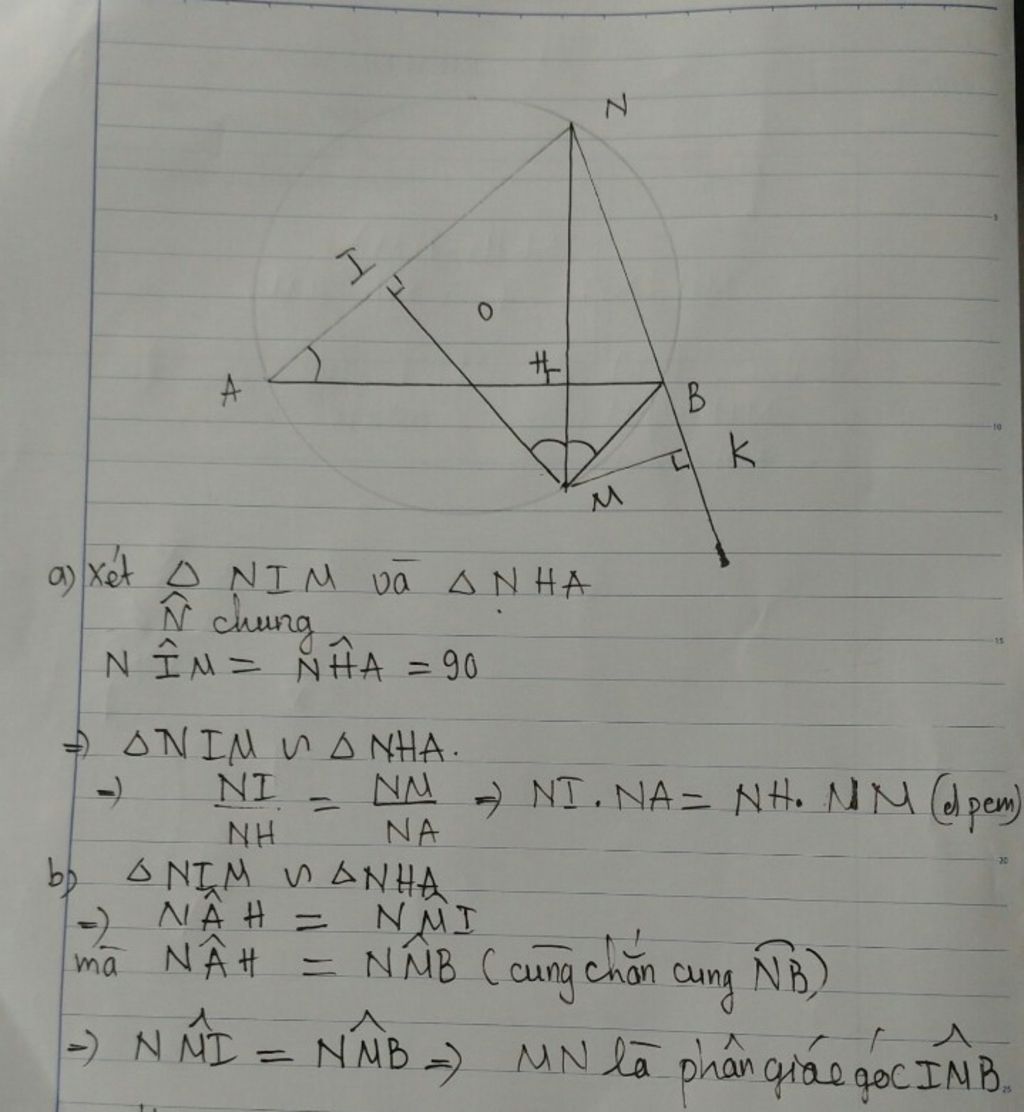 N
I
O
A
H
B
K
M
a) Xét △ NIM và △ NHA
N̂ chung
N Î M = N Ĥ A = 90
=> △NIM ∽ △NHA.
=> NI/NH = NM/NA => NI . NA = NH. NM (đpcm)
b) △NIM ∽ △NHA
=> N Â H = N M̂ I
mà N Â H = N M̂ B (cùng chắn cung NB)
=> N M̂ I = N M̂ B => MN là phân giác góc I M̂ B.
5
10
15
20
25